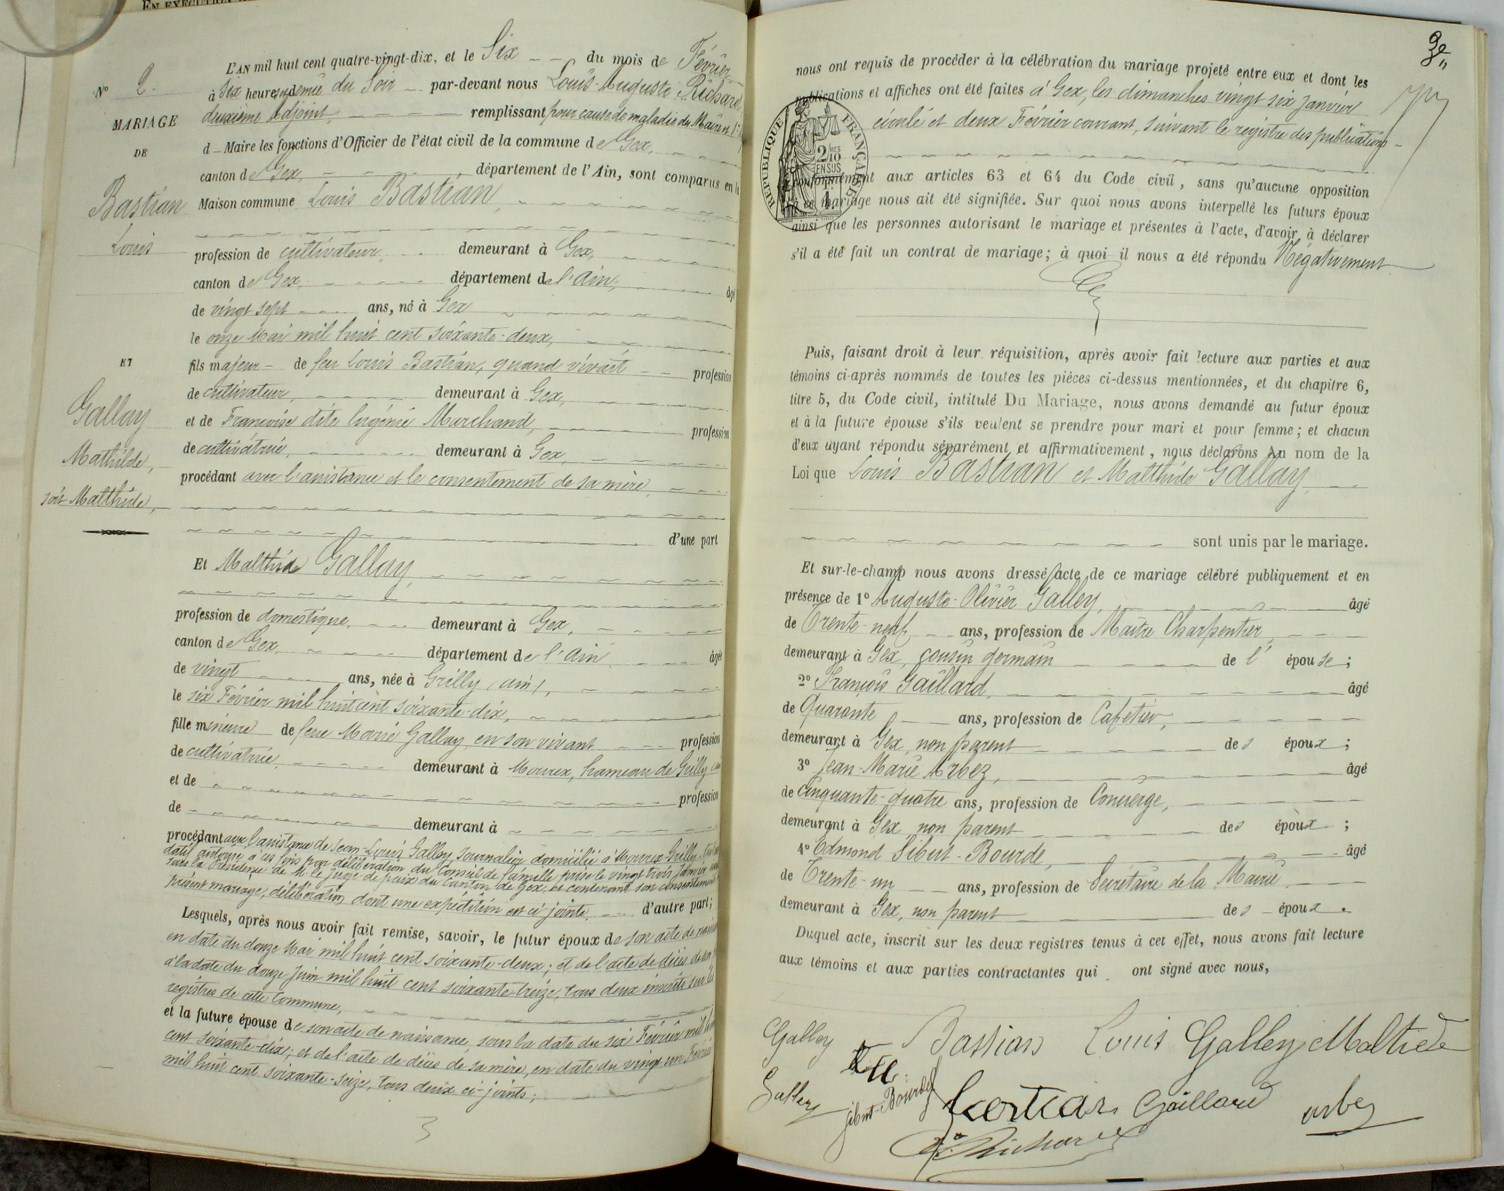 EN EXÉCUTION
L'AN mil huit cent quatre-vingt-dix, et le Six du mois de Février
à six heures du Soir par-devant nous Louis-Auguste Richard
deuxième Adjoint, remplissant pour cause de maladie du Maire
d Maire les fonctions d'Officier de l'état civil de la commune de Gex,
canton de Gex, département de l'Ain, sont comparus en la
Maison commune Louis Bastian,
profession de cultivateur, demeurant à Gex,
canton de Gex, département de l'Ain, âgé
de vingt sept ans, né à Gex
le onze Mai mil huit cent soixante-deux,
fils majeur de feu Louis Bastian, quand vivait profession
de cultivateur, demeurant à Gex,
et de Françoise dite Eugénie Marchand, profession
de cultivatrice, demeurant à Gex,
procédant avec l'assistance et le consentement de sa mère,
d'une part
Et Matthide Gallay,
profession de domestique, demeurant à Gex,
canton de Gex, département de l'Ain, âgée
de vingt ans, née à Grilly (Ain),
le six Février mil huit cent soixante-dix,
fille mineure de feue Marie Gallay, en son vivant profession
de cultivatrice, demeurant à Mourex, hameau de Grilly
et de profession
de demeurant à
procédant avec l'assistance de Jean-Louis Gallay, journalier, domicilié à Mourex-Grilly
autorisé à ces fins par délibération du Conseil de famille prise le vingt trois Janvier
sous la Présidence de M. le Juge de paix du Canton de Gex, et contenant son consentement
présent mariage, délibération dont une expédition est ci-jointe, d'autre part;
Lesquels, après nous avoir fait remise, savoir, le futur époux de son acte de naissance
en date du douze Mai mil huit cent soixante-deux; et de l'acte de décès de son
à la date du douze Juin mil huit cent soixante-treize, tous deux inscrits sur les
registres de cette Commune,
et la future épouse de son acte de naissance, sous la date du six Février mil huit
cent soixante-dix; et de l'acte de décès de sa mère, en date du vingt un Février
mil huit cent soixante-seize, tous deux ci-joints;
3
N° 2.
MARIAGE
DE
Bastian
Louis
ET
Gallay
Mathilde,
soit Matthide,
3e
nous ont requis de procéder à la célébration du mariage projeté entre eux et dont les
publications et affiches ont été faites à Gex, les dimanches vingt six janvier
écoulé et deux Février courant, suivant le registre des publications
RÉPUBLIQUE FRANÇAISE
2/10
EN SUS
conformément aux articles 63 et 64 du Code civil, sans qu'aucune opposition
à ce mariage nous ait été signifiée. Sur quoi nous avons interpellé les futurs époux
ainsi que les personnes autorisant le mariage et présentes à l'acte, d'avoir à déclarer
s'il a été fait un contrat de mariage; à quoi il nous a été répondu Négativement
Puis, faisant droit à leur réquisition, après avoir fait lecture aux parties et aux
témoins ci-après nommés de toutes les pièces ci-dessus mentionnées, et du chapitre 6,
titre 5, du Code civil, intitulé Du Mariage, nous avons demandé au futur époux
et à la future épouse s'ils veulent se prendre pour mari et pour femme; et chacun
d'eux ayant répondu séparément et affirmativement, nous déclarons au nom de la
Loi que Louis Bastian et Matthide Gallay,
sont unis par le mariage.
Et sur-le-champ nous avons dressé acte de ce mariage célébré publiquement et en
présence de 1° Auguste-Olivier Galley, âgé
de Trente-neuf ans, profession de Maître Charpentier,
demeurant à Gex, cousin germain de l'épouse;
2° François Gaillard, âgé
de Quarante ans, profession de Cafetier,
demeurant à Gex, non parent des époux;
3° Jean-Marie Arbez, âgé
de Cinquante-quatre ans, profession de Concierge,
demeurant à Gex, non parent des époux;
4° Edmond Sibert-Bourde, âgé
de Trente-un ans, profession de Secrétaire de la Mairie
demeurant à Gex, non parent des époux.
Duquel acte, inscrit sur les deux registres tenus à cet effet, nous avons fait lecture
aux témoins et aux parties contractantes qui ont signé avec nous,
Gallay Bastian Louis Galley Maltide
Galley Sibert-Bourde Gaillard Arbez
Richard